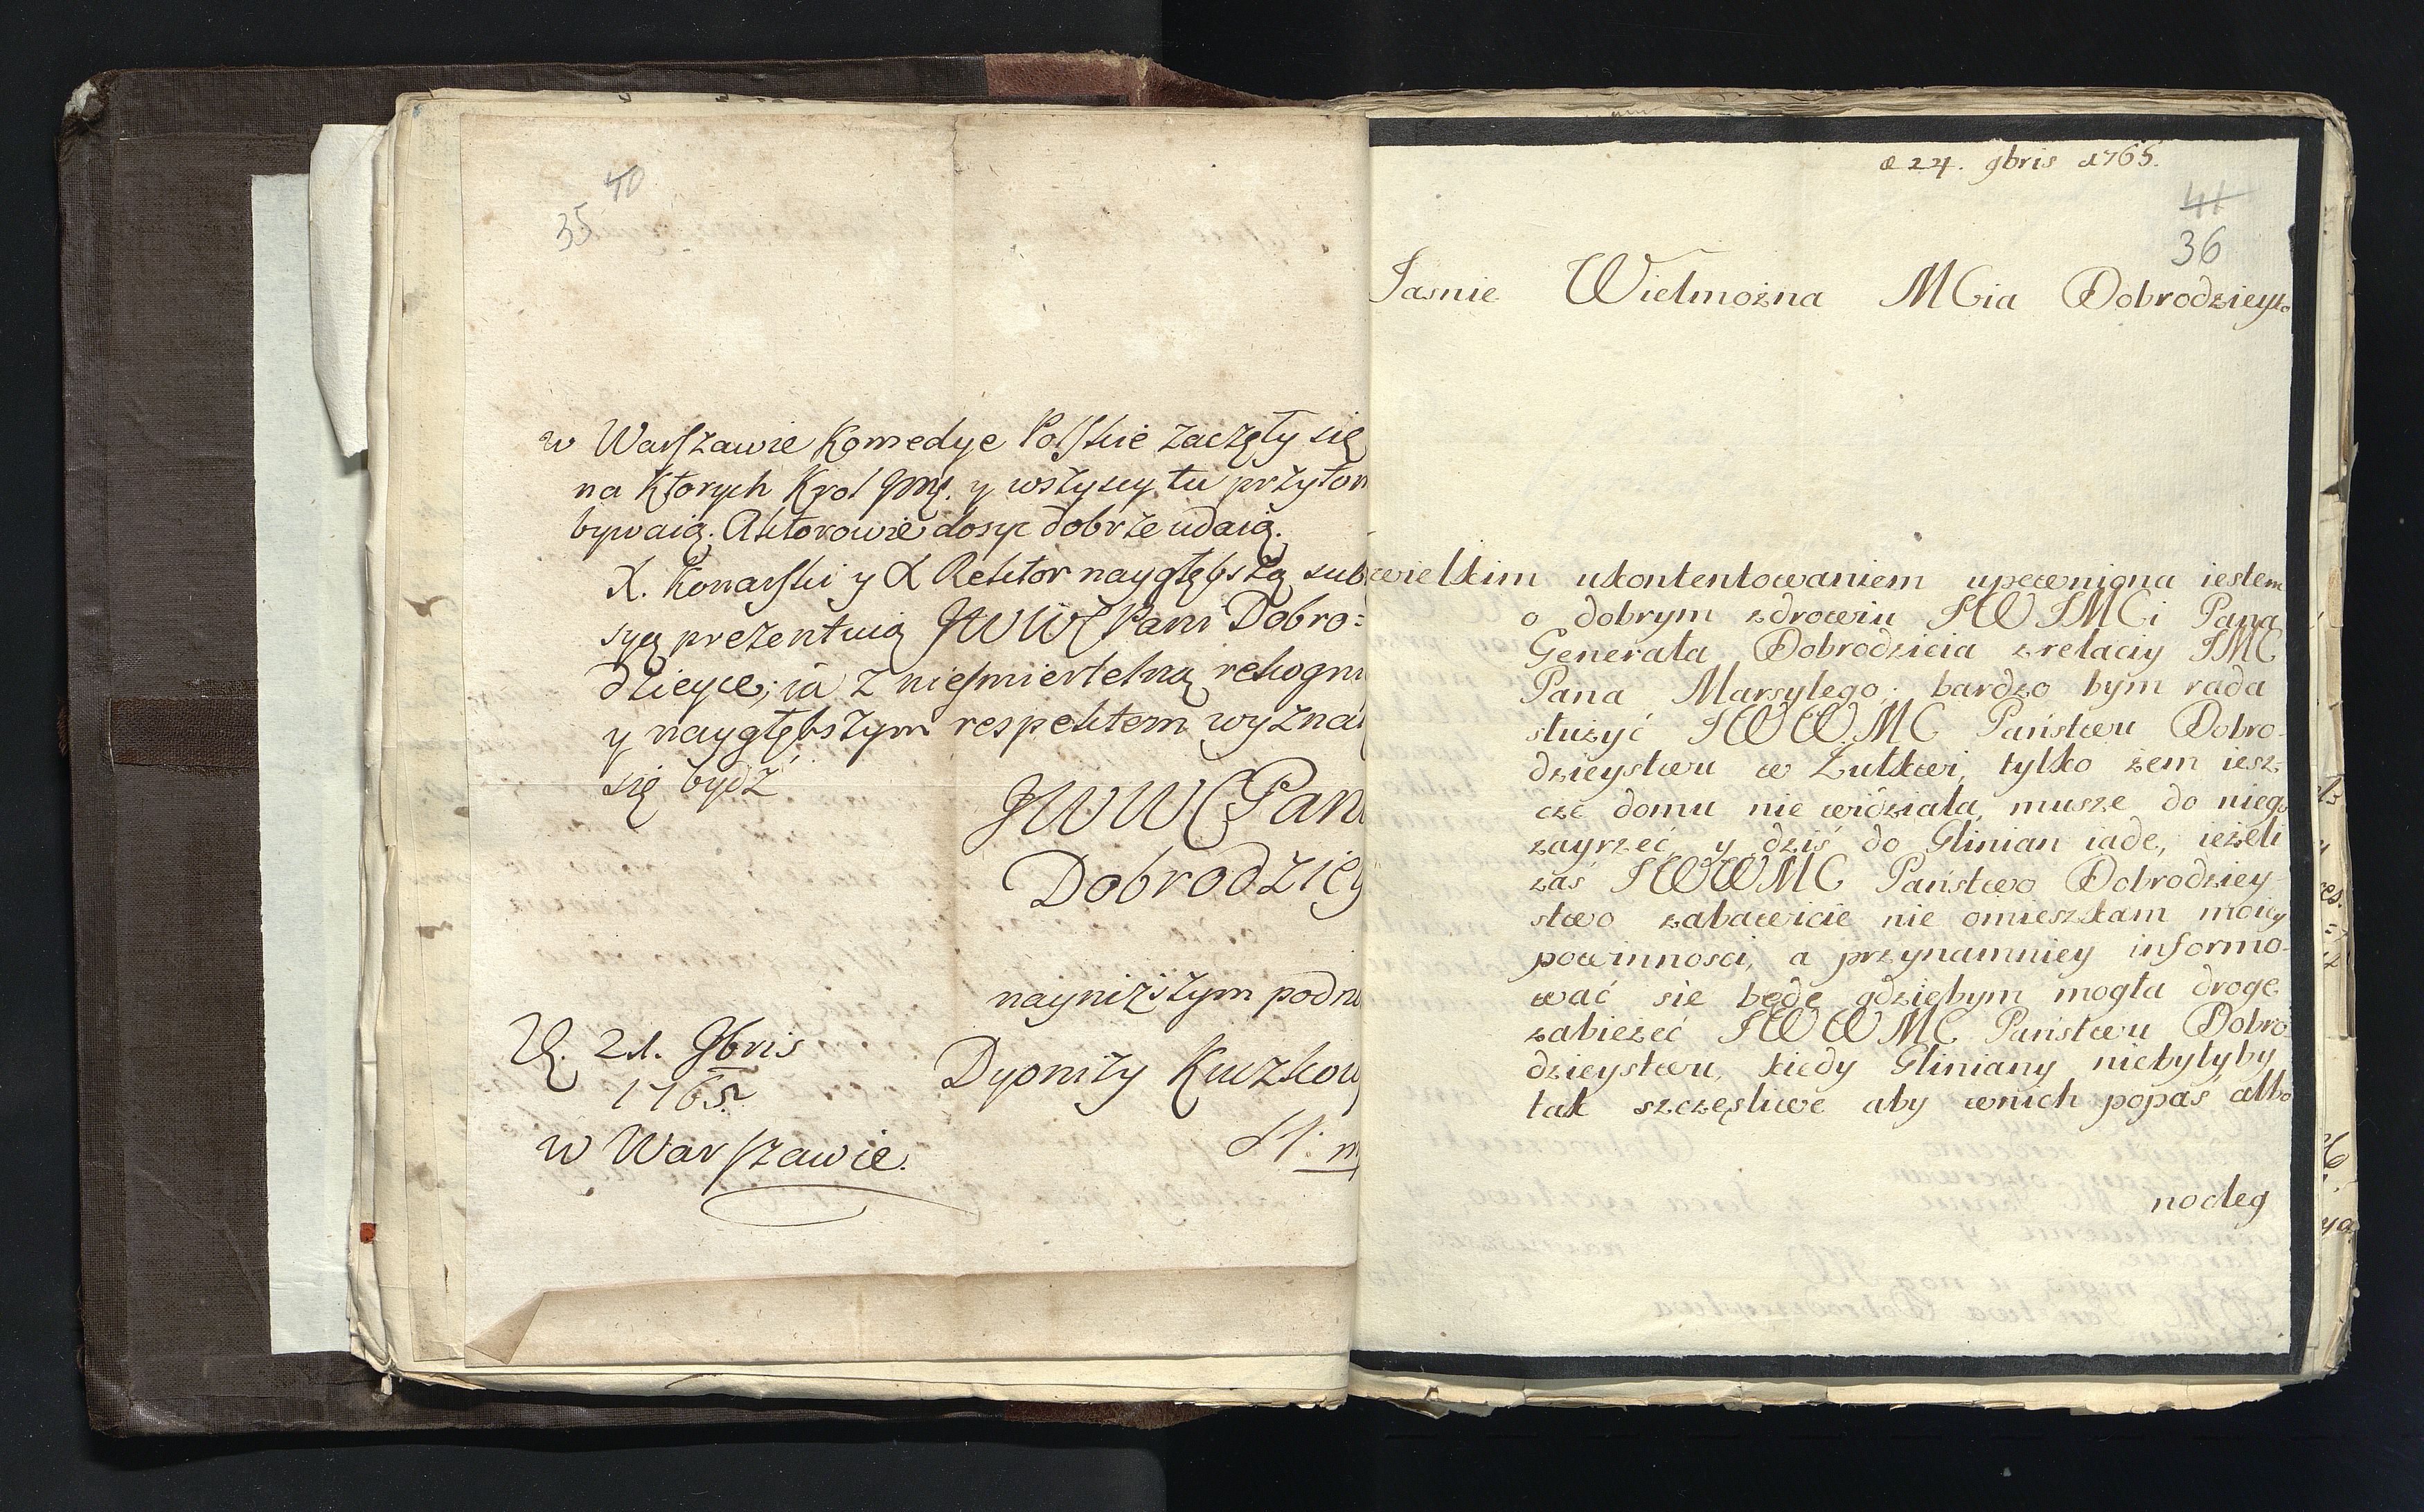 40
35
w Warszawie Komedye Polskie zaczęły się
na ktorych Krol Jmć. y wszyscy tu przyton
bywaią. Aktorowie dosyc dobrze udaią.
X. Konarski y X Rektor naygłębszą sub
syą prezentuią JWWC Pani Dobro=
dzieyce; ia z nieśmiertelną rekogni
y naygłębszym respektem wyznaię
się bydź
JWWC Pani
Dobrodziey
nayniższym podn
D. 21. 9bris
1765.
w Warszawie.
Dyonizy Kuczkow
S. P. m
a 24. 9bris 1765.
41
36
Jasnie Wielmożna MCia Dobrodzieyko
wielkim ukontentowaniem upewniona iestem
o dobrym zdrowiu JWJMCi Pana
Generała Dobrodzieia z relaciy JMC
Pana Marsylego; bardzo bym rada
służyć JWWMC Państwu Dobro-
dzieystwu w Żułkwi, tylko żem iesz-
cze domu nie widziała, musze do niego
zayrzeć, y dziś do Glinian iade, ieżeli
zaś JWWMC Państwo Dobrodziey-
stwo zabawicie nie omieszkam moiey
powinnosci, a przynamniey informo-
wać sie będę gdziebym mogła droge
zabieżeć JWWMC Państwu Dobro
dzieystwu, kiedy Gliniany niebyłyby
tak szczęsliwe aby wnich popas albo
nocleg